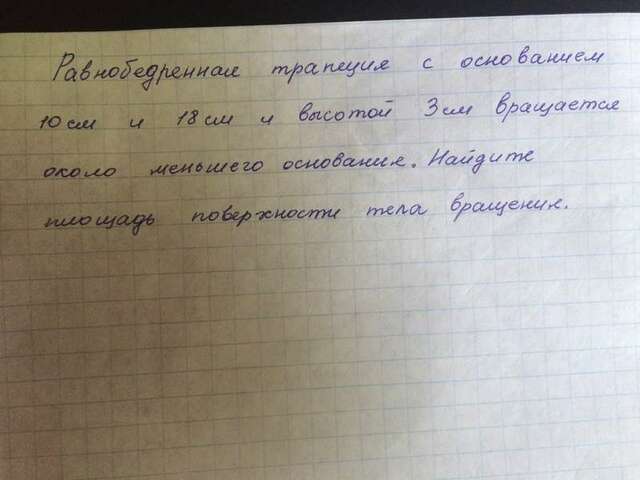 Равнобедренная трапеция с основанием
10 см и 18 см и высотой 3 см вращается
около меньшего основания. Найдите
площадь поверхности тела вращения.